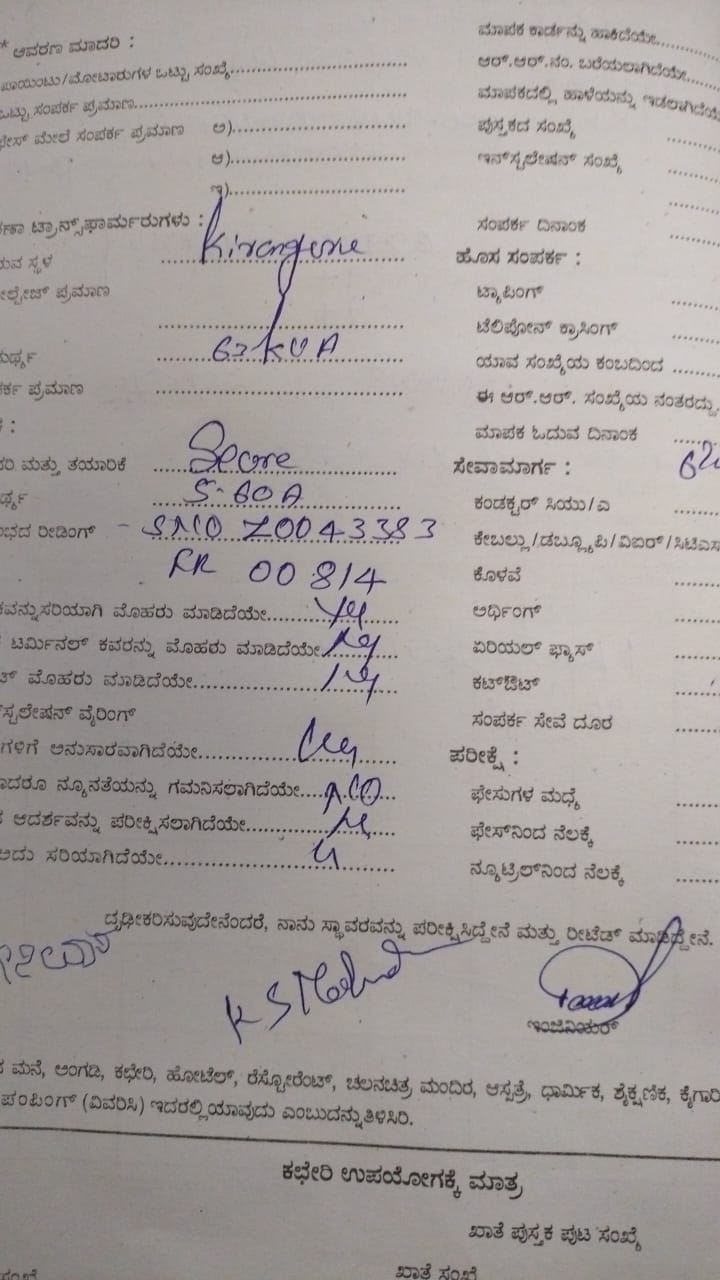 * ಆವರಣ ಮಾದರಿ :
ಪಾಯಿಂಟು/ಮೋಟಾರುಗಳ ಒಟ್ಟು ಸಂಖ್ಯೆ
ಒಟ್ಟು ಸಂಪರ್ಕ ಪ್ರಮಾಣ
ಫೇಸ್ ಮೇಲೆ ಸಂಪರ್ಕ ಪ್ರಮಾಣ ಅ)
ಆ)
ಇ)
ಟ್ರಾನ್ಸ್‌ಫಾರ್ಮರುಗಳು :
ಸ್ಥಳ
ಪ್ರಮಾಣ
63 KVA
ಪ್ರಮಾಣ
ಮತ್ತು ತಯಾರಿಕೆ
5-60A
ರೀಡಿಂಗ್ - SNO Z0043383
RR 00814
ಮೊಹರು ಮಾಡಿದೆಯೇ
ಟರ್ಮಿನಲ್ ಕವರನ್ನು ಮೊಹರು ಮಾಡಿದೆಯೇ
ಮೊಹರು ಮಾಡಿದೆಯೇ
ವೈರಿಂಗ್
ಅನುಸಾರವಾಗಿದೆಯೇ
ನ್ಯೂನತೆಯನ್ನು ಗಮನಿಸಲಾಗಿದೆಯೇ NO
ಆದರ್ಶವನ್ನು ಪರೀಕ್ಷಿಸಲಾಗಿದೆಯೇ
ಅದು ಸರಿಯಾಗಿದೆಯೇ
ಮಾಪಕ ಕಾರ್ಡನ್ನು ಹಾಕಿದೆಯೇ
ಆರ್.ಆರ್.ನಂ. ಬರೆಯಲಾಗಿದೆಯೇ
ಮಾಪಕದಲ್ಲಿ ಹಾಳೆಯನ್ನು ಇಡಲಾಗಿದೆಯೇ
ಪುಸ್ತಕದ ಸಂಖ್ಯೆ
ಇನ್‌ಸ್ಟಲೇಷನ್ ಸಂಖ್ಯೆ
ಸಂಪರ್ಕ ದಿನಾಂಕ
ಹೊಸ ಸಂಪರ್ಕ :
ಟ್ಯಾಪಿಂಗ್
ಟೆಲಿಪೋನ್ ಕ್ರಾಸಿಂಗ್
ಯಾವ ಸಂಖ್ಯೆಯ ಕಂಬದಿಂದ
ಈ ಆರ್.ಆರ್. ಸಂಖ್ಯೆಯ ನಂತರದ್ದು
ಮಾಪಕ ಓದುವ ದಿನಾಂಕ
ಸೇವಾಮಾರ್ಗ :
ಕಂಡಕ್ಟರ್ ಸಿಯು/ಎ
ಕೇಬಲ್ಲು/ಡಬ್ಲ್ಯೂಪಿ/ವಿಐಆರ್/ಸಿಟಿಎಸ್
ಕೊಳವೆ
ಅರ್ಥಿಂಗ್
ಏರಿಯಲ್ ಫ್ಯೂಸ್
ಕಟ್‌ಔಟ್
ಸಂಪರ್ಕ ಸೇವೆ ದೂರ
ಪರೀಕ್ಷೆ :
ಫೇಸುಗಳ ಮಧ್ಯೆ
ಫೇಸ್‌ನಿಂದ ನೆಲಕ್ಕೆ
ನ್ಯೂಟ್ರಲ್‌ನಿಂದ ನೆಲಕ್ಕೆ
ದೃಢೀಕರಿಸುವುದೇನೆಂದರೆ, ನಾನು ಸ್ಥಾವರವನ್ನು ಪರೀಕ್ಷಿಸಿದ್ದೇನೆ ಮತ್ತು ರೀಟೆಡ್ ಮಾಡಿದ್ದೇನೆ.
ಇಂಜಿನಿಯರ್
ಮನೆ, ಅಂಗಡಿ, ಕಛೇರಿ, ಹೋಟೆಲ್, ರೆಸ್ಟೋರೆಂಟ್, ಚಲನಚಿತ್ರ ಮಂದಿರ, ಆಸ್ಪತ್ರೆ, ಧಾರ್ಮಿಕ, ಶೈಕ್ಷಣಿಕ, ಕೈಗಾರಿ
ಪಂಪಿಂಗ್ (ವಿವರಿಸಿ) ಇದರಲ್ಲಿಯಾವುದು ಎಂಬುದನ್ನುತಿಳಿಸಿರಿ.
ಕಛೇರಿ ಉಪಯೋಗಕ್ಕೆ ಮಾತ್ರ
ಖಾತೆ ಪುಸ್ತಕ ಪುಟ ಸಂಖ್ಯೆ
ಖಾತೆ ಸಂಖ್ಯೆ